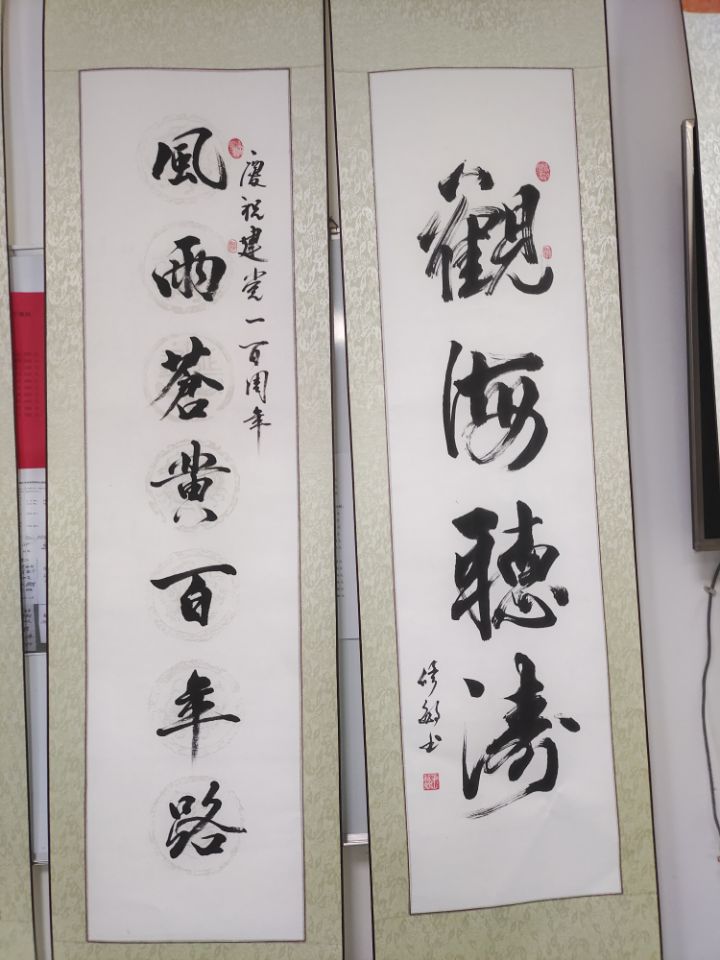 觀海聽涛
慶祝建党一百周年
風雨蒼黄百年路